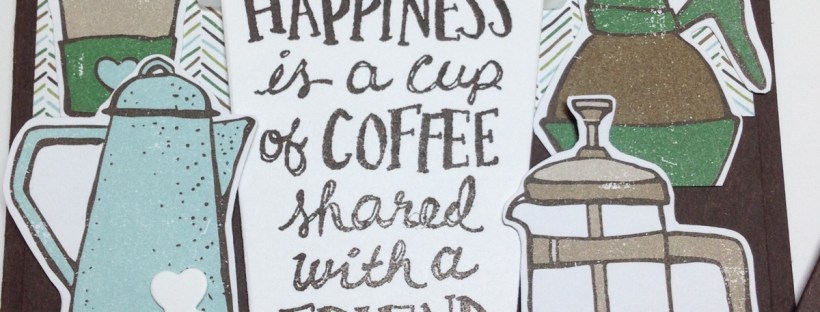 HAPPINESS
is a cup
of COFFEE
shared
with a
FRIEND